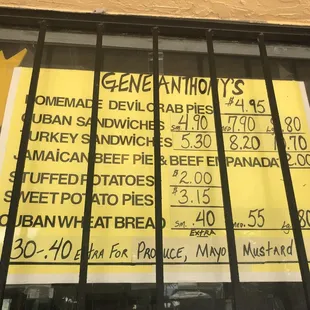 GENE ANTHONY'S
HOMEMADE DEVIL CRAB PIES $4.95
CUBAN SANDWICHES SM. 4.90 MED. 7.90 9.80
TURKEY SANDWICHES 5.30 8.20 10.70
JAMAICAN BEEF PIE & BEEF EMPANADA 2.00
STUFFED POTATOES $2.00
SWEET POTATO PIES $3.15
CUBAN WHEAT BREAD SM. .40 MED. .55 LG. .80
EXTRA
30-.40 EXTRA FOR PRODUCE, MAYO MUSTARD